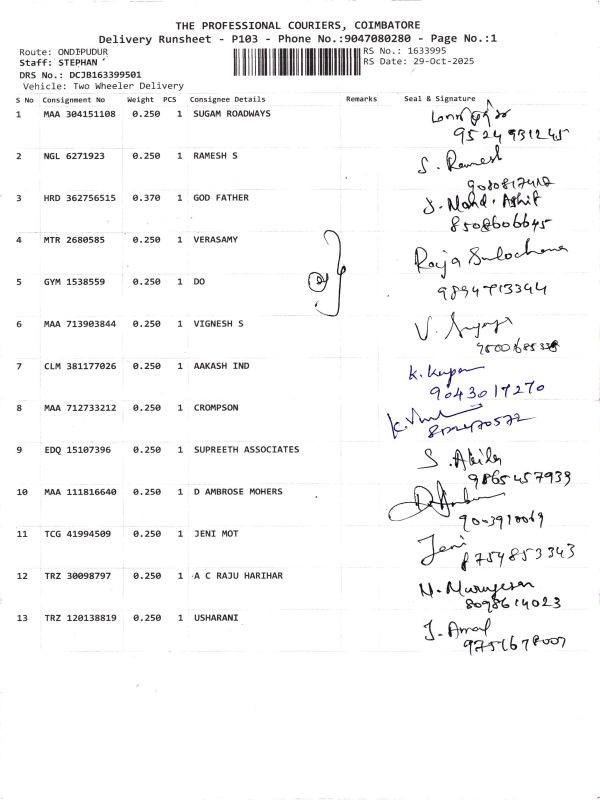 THE PROFESSIONAL COURIERS, COIMBATORE
Delivery Runsheet - P103 - Phone No.:9047080280 - Page No.:1
Route: ONDIPUDUR
RS No.: 1633995
Staff: STEPHAN
RS Date: 29-Oct-2025
DRS No.: DCJB163399501
Vehicle: Two Wheeler Delivery
S No Consignment No Weight PCS Consignee Details Remarks Seal & Signature
1 MAA 304151108 0.250 1 SUGAM ROADWAYS
9524931245
2 NGL 6271923 0.250 1 RAMESH S S. Ramesh
3 HRD 362756515 0.370 1 GOD FATHER J. Mohd. Ashif
8508606645
4 MTR 2680585 0.250 1 VERASAMY Raja Sulochana
5 GYM 1538559 0.250 1 DO
6 MAA 713903844 0.250 1 VIGNESH S V.
7 CLM 381177026 0.250 1 AAKASH IND K.
9043017270
8 MAA 712733212 0.250 1 CROMPSON
9 EDQ 15107396 0.250 1 SUPREETH ASSOCIATES S. Akila
9865457939
10 MAA 111816640 0.250 1 D AMBROSE MOHERS
11 TCG 41994509 0.250 1 JENI MOT Jeni
8754853343
12 TRZ 30098797 0.250 1 A C RAJU HARIHAR N. Murugesan
8098614023
13 TRZ 120138819 0.250 1 USHARANI J. Amal